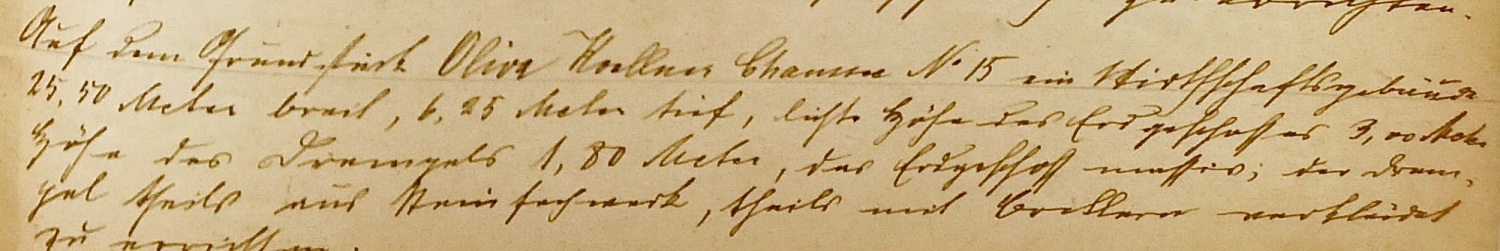 zu errichten.
Auf dem Grundstück Oliva Koellner Chaussee No 15 ein Wirthschaftsgebäude
25,50 Meter breit, 6,25 Meter tief, lichte Höhe des Erdgeschosses 3,00 Meter
Höhe des Drempels 1,80 Meter, das Erdgeschoß massiv; der Drem-
pel theils aus Steinfachwerk, theils mit Brettern verkleidet
zu errichten.